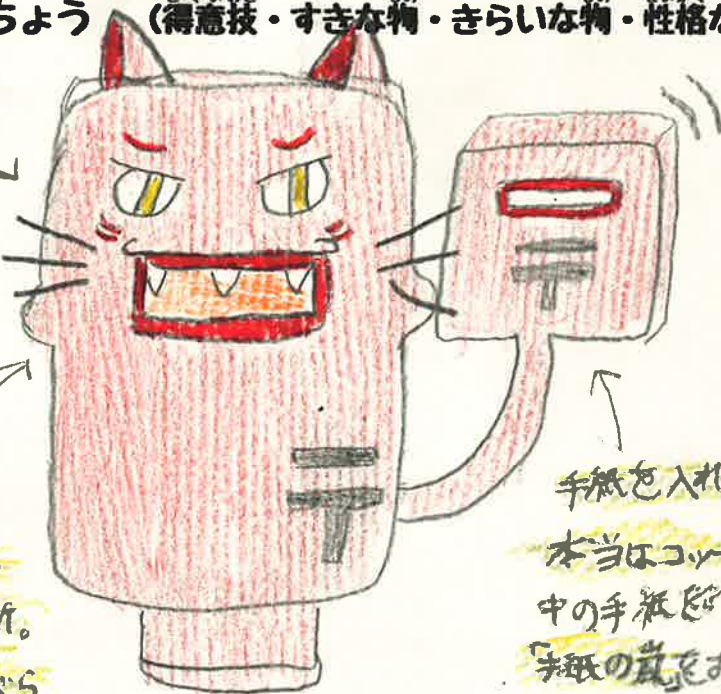 ちょう （得意技・すきな物・きらいな物・性格な
〒
〒
所。
から
手紙を入れ
本当はコッ
中の手紙を
「手紙の嵐をお